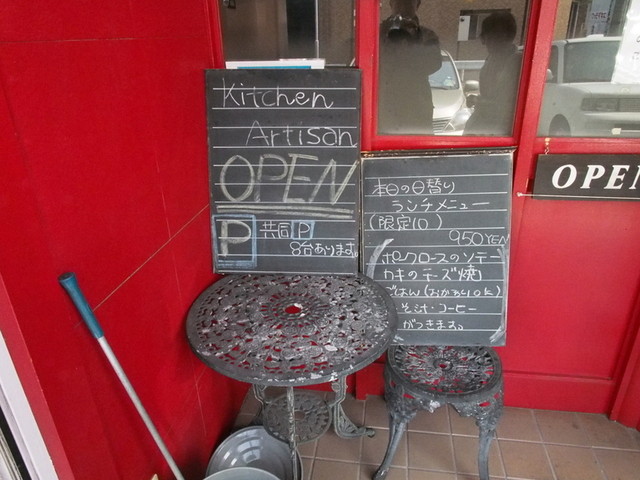 Kitchen
Artisan
OPEN
P 共同P
8台あります
本日の日替り
ランチメニュー
(限定10)
950YEN
ポークロースのソテー
カキのチーズ焼
ごはん(おかわりOK)
みそ汁・コーヒー
がつきます。
OPEN